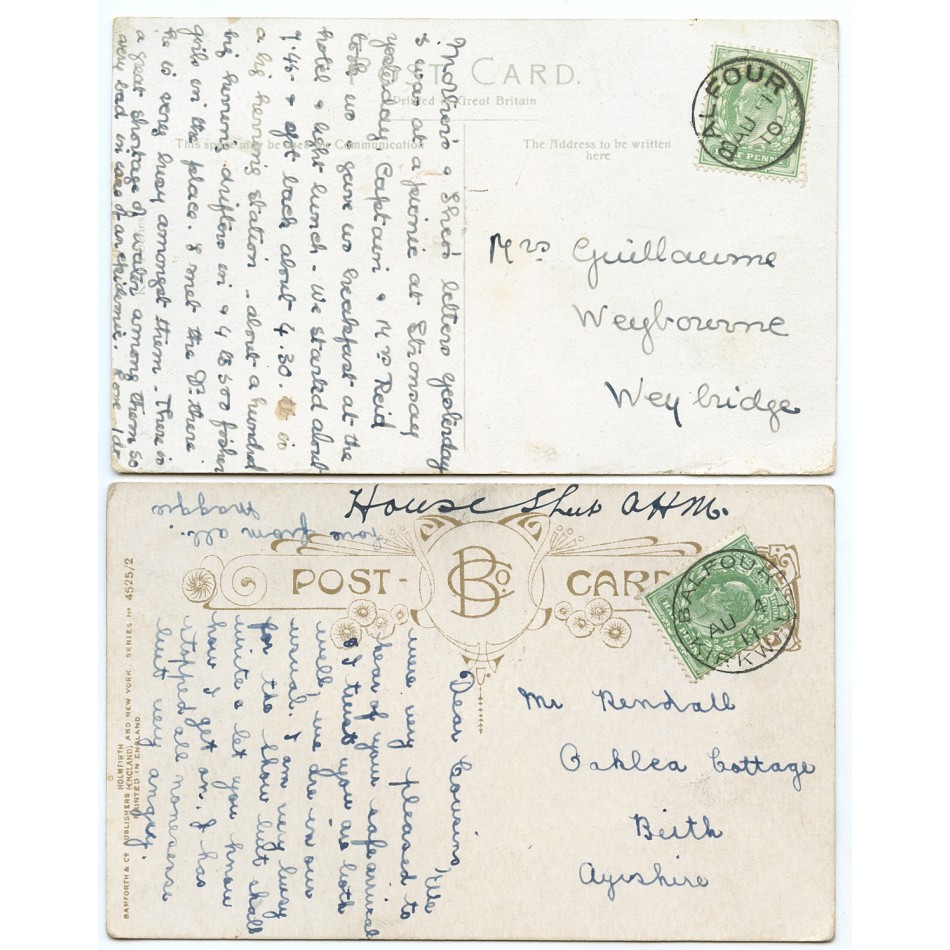 POST CARD.
Printed in Great Britain
This space may be used for Communication
The Address to be written
here
BALFOUR
AU
10
Mrs Guillaume
Weybourne
Weybridge
Mother's & Sheo's letters yesterday
I was at a picnic at Stronsay
yesterday. Captain & Mrs Reid
took us & gave us breakfast at the
hotel & light lunch - We started about
7.45 & got back about 4.30. It is
a big herring station - about a hundred
big herring drifters in & 4 to 500 fisher
girls in the place. I met the Dr. there
he is very busy amongst them - There is
a great shortage of water among them so
very bad in case of an epidemic. Love Ida
House Shut AHM.
love from all.
Maggie
POST-CARD
B & Co
BALFOUR
AU 4
11
KIRKWALL
Mr Rendall
Oaklea Cottage
Beith
Ayrshire
Dear Cousins, We
were very pleased to
hear of your safe arrival
& I trust you are both
well, we are in our
usual. I am very busy
for the show but shall
write & let you know
how I get on. I has
stopped all nonesense
but very angry.
BAMFORTH & Co PUBLISHERS (ENGLAND) AND NEW YORK. SERIES No 4525/2
HOLMFIRTH
PRINTED IN ENGLAND.